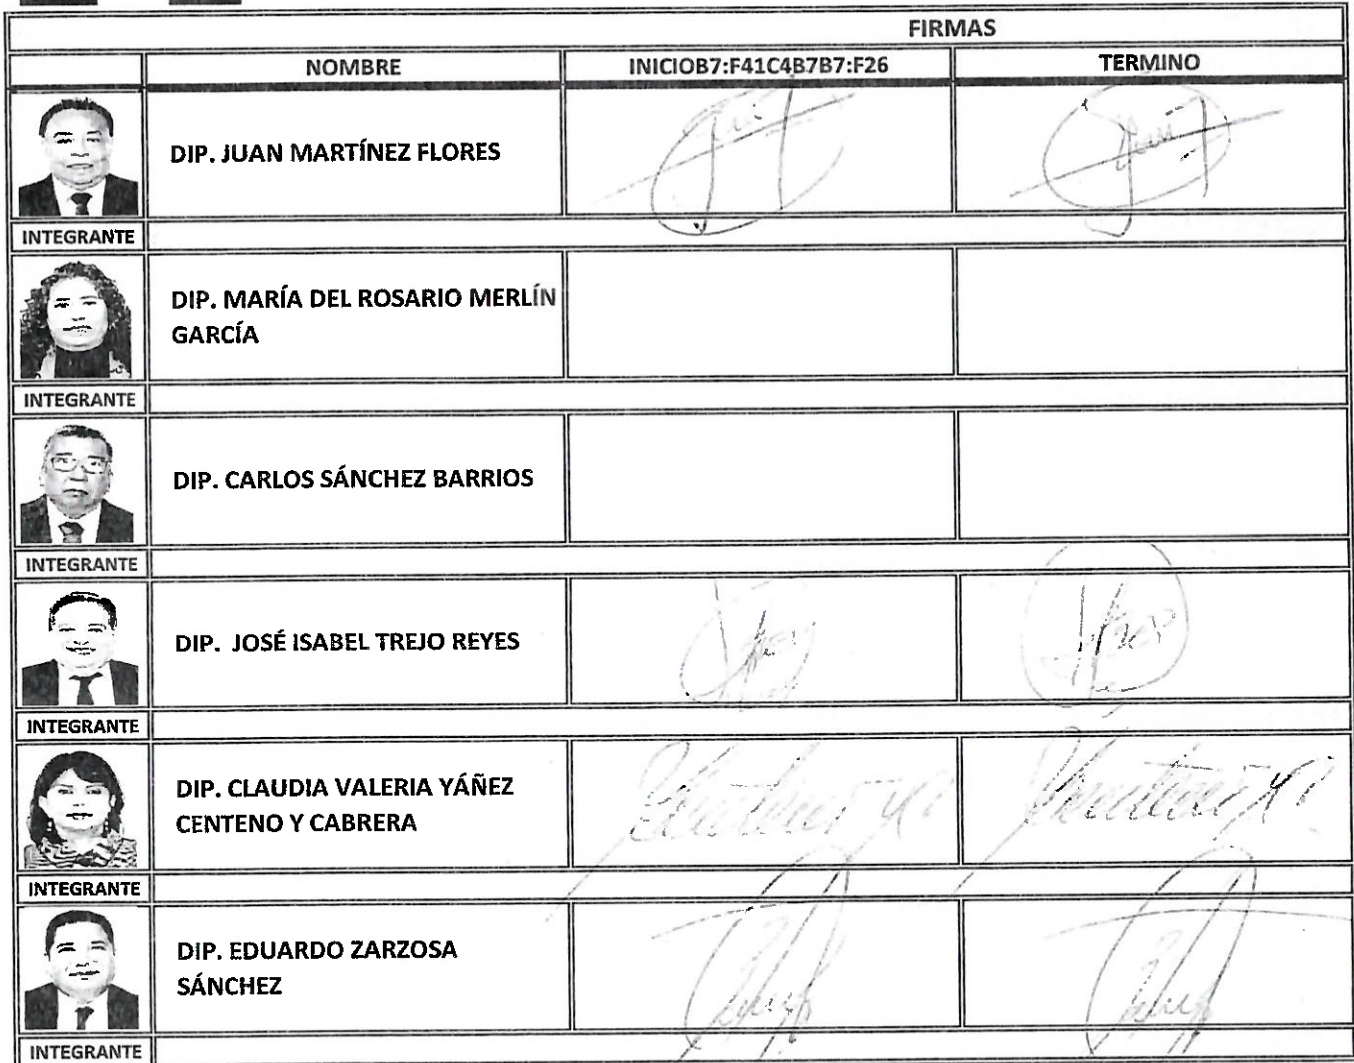 FIRMAS
NOMBRE INICIOB7:F41C4B7B7:F26 TERMINO
DIP. JUAN MARTÍNEZ FLORES
INTEGRANTE
DIP. MARÍA DEL ROSARIO MERLÍN
GARCÍA
INTEGRANTE
DIP. CARLOS SÁNCHEZ BARRIOS
INTEGRANTE
DIP. JOSÉ ISABEL TREJO REYES
INTEGRANTE
DIP. CLAUDIA VALERIA YÁÑEZ
CENTENO Y CABRERA
INTEGRANTE
DIP. EDUARDO ZARZOSA
SÁNCHEZ
INTEGRANTE